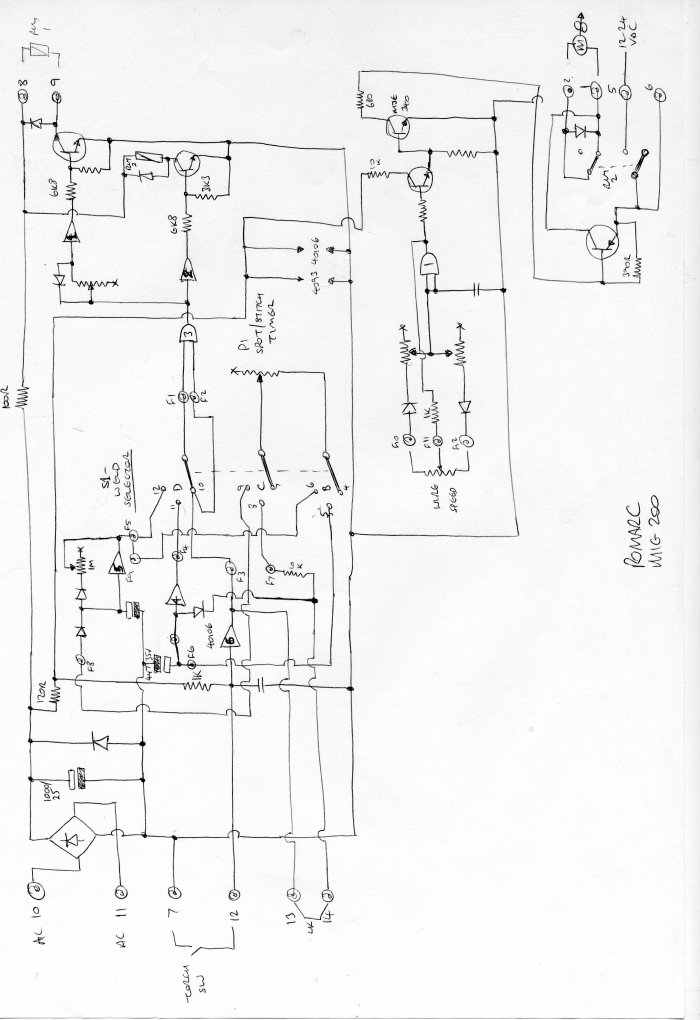 POMARC
MIG 200
AC 10
AC 11
7
12
TORCH
SW
13
14
LK
1000/
25
120R
100R
F8
1M
5
F9
F5
S1-
WELD
SELECTOR
12
D
11
10
14
4
F3
40106
6
F6
4u7/35V
1K
F7
1K
9
C
8
7
6
B
5
4
F1
F2
3
P1
SPOT/STITCH
TIMER
4093
40106
2
6K8
3K3
6K8
RLY
2
8
9
RLY
1
F10
F11
F12
WIRE
SPEED
1K
1
1K
MJE
340
680
390R
RLY
2
2
1
5
6
M
12-24
VDC